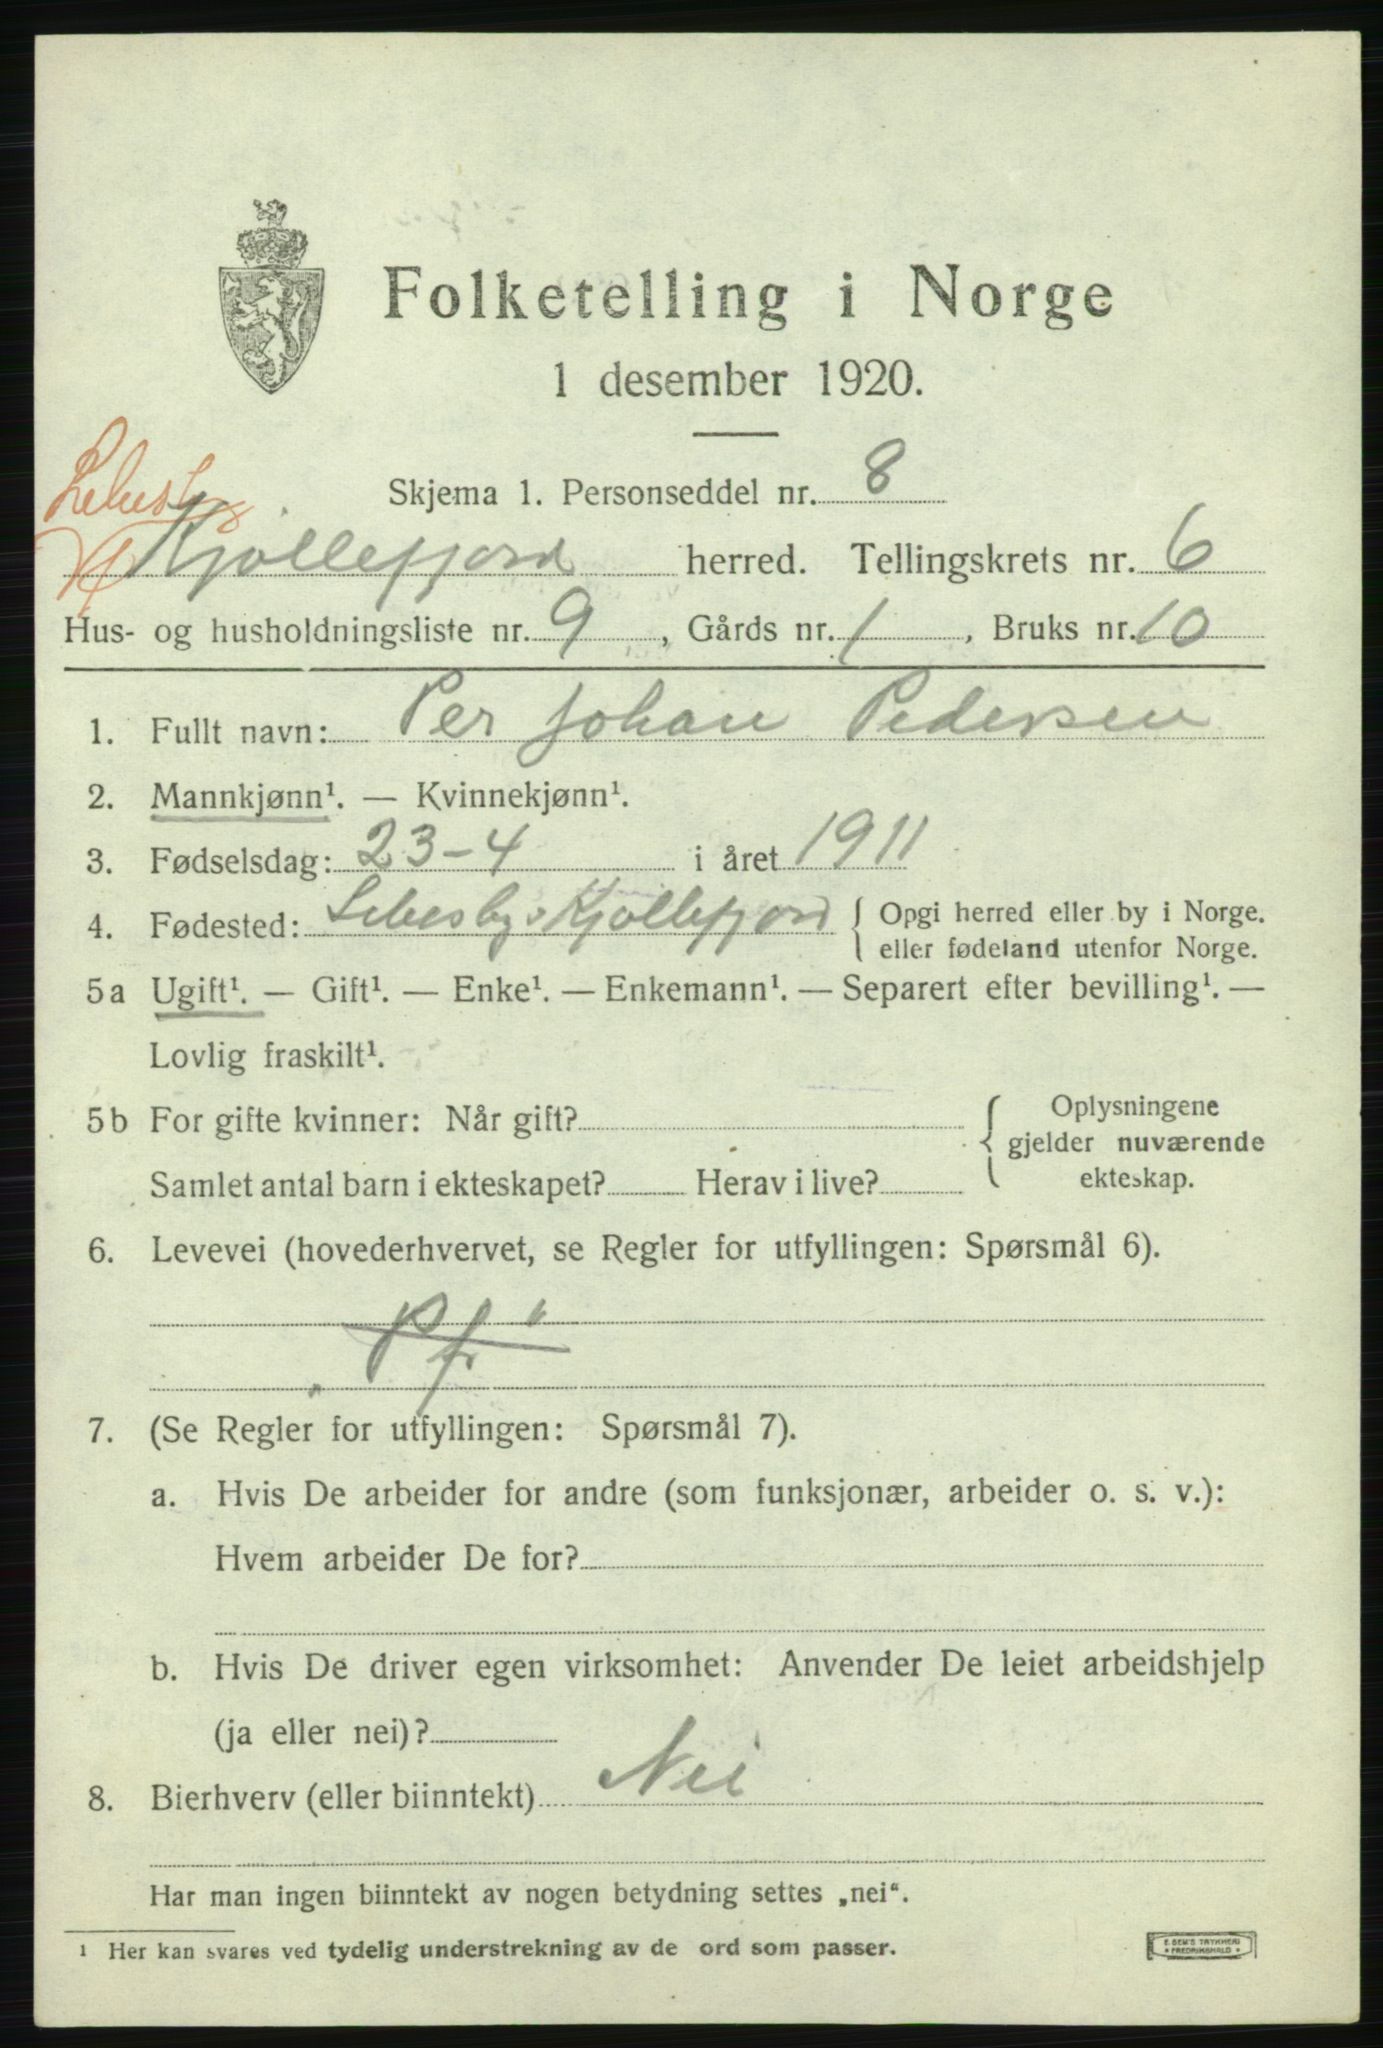 Folketelling i Norge
1 desember 1920.
Skjema 1. Personseddel nr. 8
Lebesby
Kjøllefjord herred. Tellingskrets nr. 6
Hus- og husholdningsliste nr. 9, Gårds nr. 1, Bruks nr. 10
1. Fullt navn: Per Johan Pedersen
2. Mannkjønn¹. — Kvinnekjønn¹.
3. Fødselsdag: 23-4 i året 1911
4. Fødested: Lebesby Kjøllefjord { Opgi herred eller by i Norge.
eller fødeland utenfor Norge.
5a Ugift¹. — Gift¹. — Enke¹. — Enkemann¹. — Separert efter bevilling¹. —
Lovlig fraskilt¹.
5b For gifte kvinner: Når gift? { Oplysningene
gjelder nuværende
Samlet antal barn i ekteskapet? Herav i live? ekteskap.
6. Levevei (hovederhvervet, se Regler for utfyllingen: Spørsmål 6).
7. (Se Regler for utfyllingen: Spørsmål 7).
a. Hvis De arbeider for andre (som funksjonær, arbeider o. s. v.):
Hvem arbeider De for?
b. Hvis De driver egen virksomhet: Anvender De leiet arbeidshjelp
(ja eller nei)?
8. Bierhverv (eller biinntekt) Nei
Har man ingen biinntekt av nogen betydning settes „nei“.
¹ Her kan svares ved tydelig understrekning av de ord som passer.
E. SEM'S TRYKKERI
• FREDRIKSHALD •